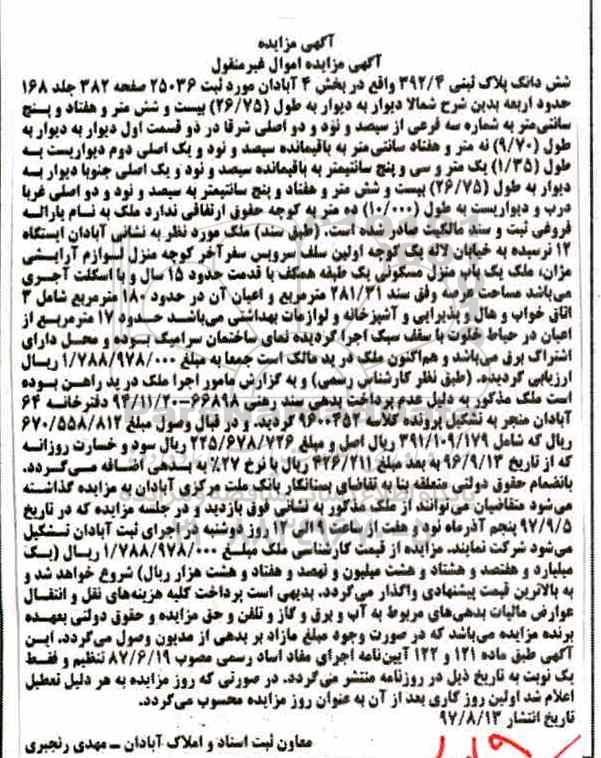 آگهی مزایده
آگهی مزایده اموال غیرمنقول
شش دانگ پلاک ثبتی ۳۹۲/۴ واقع در بخش ۴ آبادان مورد ثبت ۲۵۰۳۶ صفحه ۳۸۲ جلد ۱۶۸
حدود اربعه بدین شرح شمالا دیوار به دیوار به طول (۲۶/۷۵) بیست و شش متر و هفتاد و پنج
سانتی‌متر به شماره سه فرعی از سیصد و نود و دو اصلی شرقا در دو قسمت اول دیوار به دیوار به
طول (۹/۷۰) نه متر و هفتاد سانتی‌متر به باقیمانده سیصد و نود و یک اصلی دوم دیواریست به
طول (۱/۳۵) یک متر و سی و پنج سانتیمتر به باقیمانده سیصد و نود و یک اصلی جنوبا دیوار به
دیوار به طول (۲۶/۷۵) بیست و شش متر و هفتاد و پنج سانتیمتر به سیصد و نود و دو اصلی غربا
درب و دیواریست به طول (۱۰/۰۰۰) ده متر به کوچه حقوق ارتفاقی ندارد ملک به نام یاراله
فروغی ثبت و سند مالکیت صادر شده است. (طبق سند) ملک مورد نظر به نشانی آبادان ایستگاه
۱۲ نرسیده به خیابان لاله یک کوچه اولین سلف سرویس سفرآخر کوچه منزل لوازم آرایشی
مژان، ملک یک باب منزل مسکونی یک طبقه همکف با قدمت حدود ۱۵ سال و با اسکلت آجری
می‌باشد مساحت عرصه وفق سند ۲۸۱/۳۱ مترمربع و اعیان آن در حدود ۱۸۰ مترمربع شامل ۳
اتاق خواب و هال و پذیرایی و آشپزخانه و لوازمات بهداشتی می‌باشد حدود ۱۷ مترمربع از
اعیان در حیاط خلوت با سقف سبک اجرا گردیده نمای ساختمان سرامیک بوده و محل دارای
اشتراک برق می‌باشد و هم‌اکنون ملک در ید مالک است جمعا به مبلغ ۱/۷۸۸/۹۷۸/۰۰۰ ریال
ارزیابی گردیده. (طبق نظر کارشناس رسمی) و به گزارش مامور اجرا ملک در ید راهن بوده
است ملک مذکور به دلیل عدم پرداخت بدهی سند رهنی ۶۶۸۹۸-۹۴/۱۱/۲۰ دفترخانه ۶۴
آبادان منجر به تشکیل پرونده کلاسه ۹۶۰۰۴۵۲ گردید. و در قبال وصول مبلغ ۶۷۰/۵۵۸/۸۱۲
ریال که شامل ۳۹۱/۱۰۹/۱۷۹ ریال اصل و مبلغ ۲۲۵/۶۷۸/۷۲۶ ریال سود و خسارت روزانه
که از تاریخ ۹۶/۹/۱۳ به بعد مبلغ ۴۲۶/۲۱۱ ریال با نرخ ۲۷٪ به بدهی اضافه می‌گردد.
بانضمام حقوق دولتی متعلقه بنا به تقاضای بستانکار بانک ملت مرکزی آبادان به مزایده گذاشته
می‌شود متقاضیان می‌توانند از ملک مذکور به نشانی فوق بازدید و در جلسه مزایده که در تاریخ
۹۷/۹/۵ پنجم آذرماه نود و هفت از ساعت ۹ الی ۱۲ روز دوشنبه در اجرای ثبت آبادان تشکیل
می‌شود شرکت نمایند. مزایده از قیمت کارشناسی ملک مبلغ ۱/۷۸۸/۹۷۸/۰۰۰ ریال (یک
میلیارد و هفتصد و هشتاد و هشت میلیون و نهصد و هفتاد و هشت هزار ریال) شروع خواهد شد و
به بالاترین قیمت پیشنهادی واگذار می‌گردد. بدیهی است پرداخت کلیه هزینه‌های نقل و انتقال
عوارض مالیات بدهی‌های مربوط به آب و برق و گاز و تلفن و حق مزایده و حقوق دولتی بعهده
برنده مزایده می‌باشد که در صورت وجود مبلغ مازاد بر بدهی از مدیون وصول می‌گردد. این
آگهی طبق ماده ۱۲۱ و ۱۲۲ آیین‌نامه اجرای مفاد اساد رسمی مصوب ۸۷/۶/۱۹ تنظیم و فقط
یک نوبت به تاریخ ذیل در روزنامه منتشر می‌گردد. در صورتی که روز مزایده به هر دلیل تعطیل
اعلام شد اولین روز کاری بعد از آن به عنوان روز مزایده محسوب می‌گردد.
تاریخ انتشار ۹۷/۸/۱۳
معاون ثبت اسناد و املاک آبادان ــ مهدی رنجبری